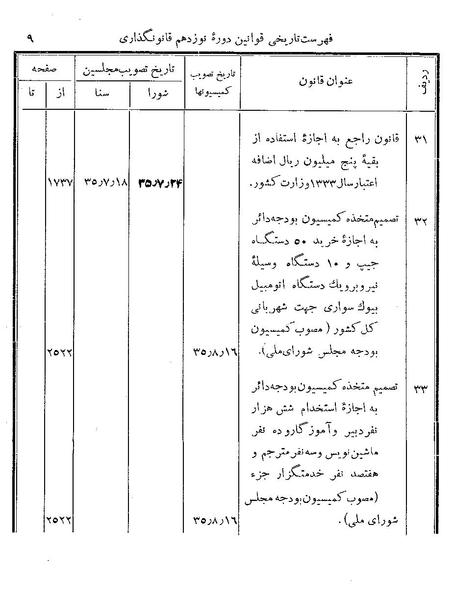 فهرست تاریخی قوانین دورهٔ نوزدهم قانونگذاری
۹
ردیف
عنوان قانون
تاریخ تصویب
کمیسیونها
تاریخ تصویب مجلسین
شورا
سنا
صفحه
از
تا
۳۱
قانون راجع به اجازهٔ استفاده از
بقیهٔ پنج میلیون ریال اضافه
اعتبار سال ۱۳۳۳ وزارت کشور.
۳۵٫۷٫۲۴
۳۵٫۷٫۱۸
۱۷۳۷
۳۲
تصمیم متخذه کمیسیون بودجه دائر
به اجازهٔ خرید ۵۰ دستگاه
جیپ و ۱۰ دستگاه وسیلهٔ
نیروبر و یك دستگاه اتومبیل
بیوك سواری جهت شهربانی
کل کشور (مصوب کمیسیون
بودجه مجلس شورای ملی).
۳۵٫۸٫۱۶
۲۵۲۲
۳۳
تصمیم متخذه کمیسیون بودجه دائر
به اجازهٔ استخدام شش هزار
نفر دبیر و آموزگار و ده نفر
ماشین نویس و سه نفر مترجم و
هفتصد نفر خدمتگزار جزء
(مصوب کمیسیون بودجه مجلس
شورای ملی).
۳۵٫۸٫۱۶
۲۵۲۲